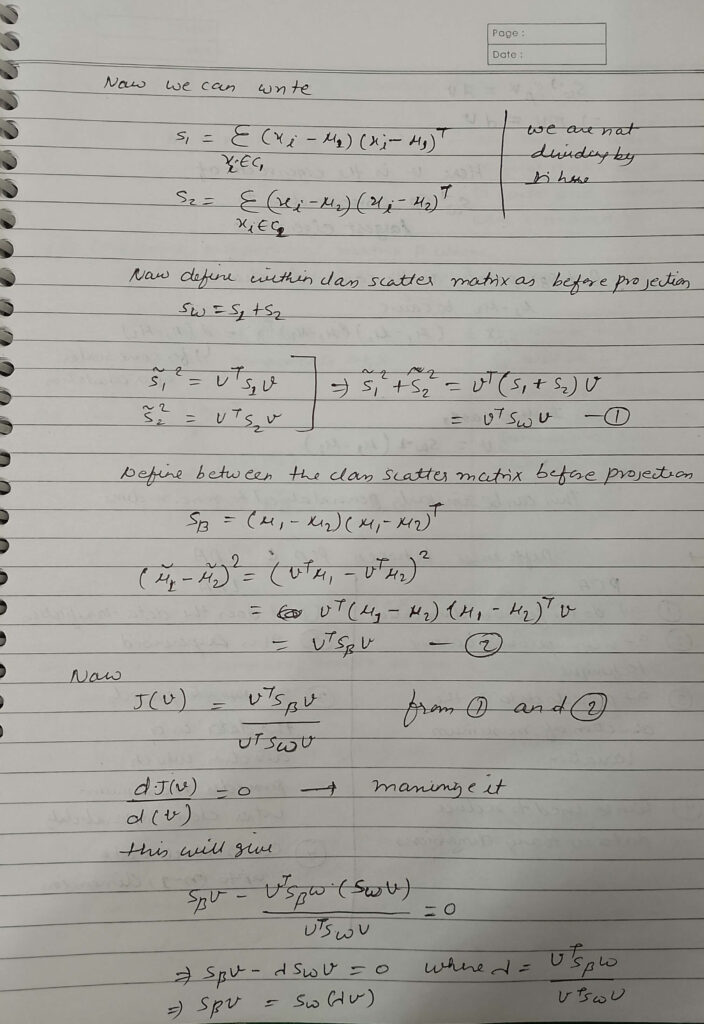 Page :
Date :
Now we can write
S₁ = Σ (xᵢ - μ₁) (xᵢ - μ₁)ᵀ
xᵢ ∈ C₁
we are not
dividing by
here
S₂ = Σ (xᵢ - μ₂) (xᵢ - μ₂)ᵀ
xᵢ ∈ C₂
Now define within class scatter matrix as before projection
Sw = S₁ + S₂
s̃₁² = vᵀ S₁ v
s̃₂² = vᵀ S₂ v
⇒ s̃₁² + s̃₂² = vᵀ (S₁ + S₂) v
= vᵀ Sw v — ①
Define between the class scatter matrix before projection
S_B = (μ₁ - μ₂) (μ₁ - μ₂)ᵀ
(μ̃₁ - μ̃₂)² = (vᵀμ₁ - vᵀμ₂)²
= vᵀ (μ₁ - μ₂) (μ₁ - μ₂)ᵀ v
= vᵀ S_B v — ②
Now
J(v) = vᵀ S_B v / vᵀ Sw v from ① and ②
dJ(v) / d(v) = 0 → maximize it
this will give
S_B v - vᵀ S_B w (Sw v) / vᵀ Sw v = 0
⇒ S_B v - λ Sw v = 0 where λ = vᵀ S_B w / vᵀ Sw v
⇒ S_B v = Sw (λv)